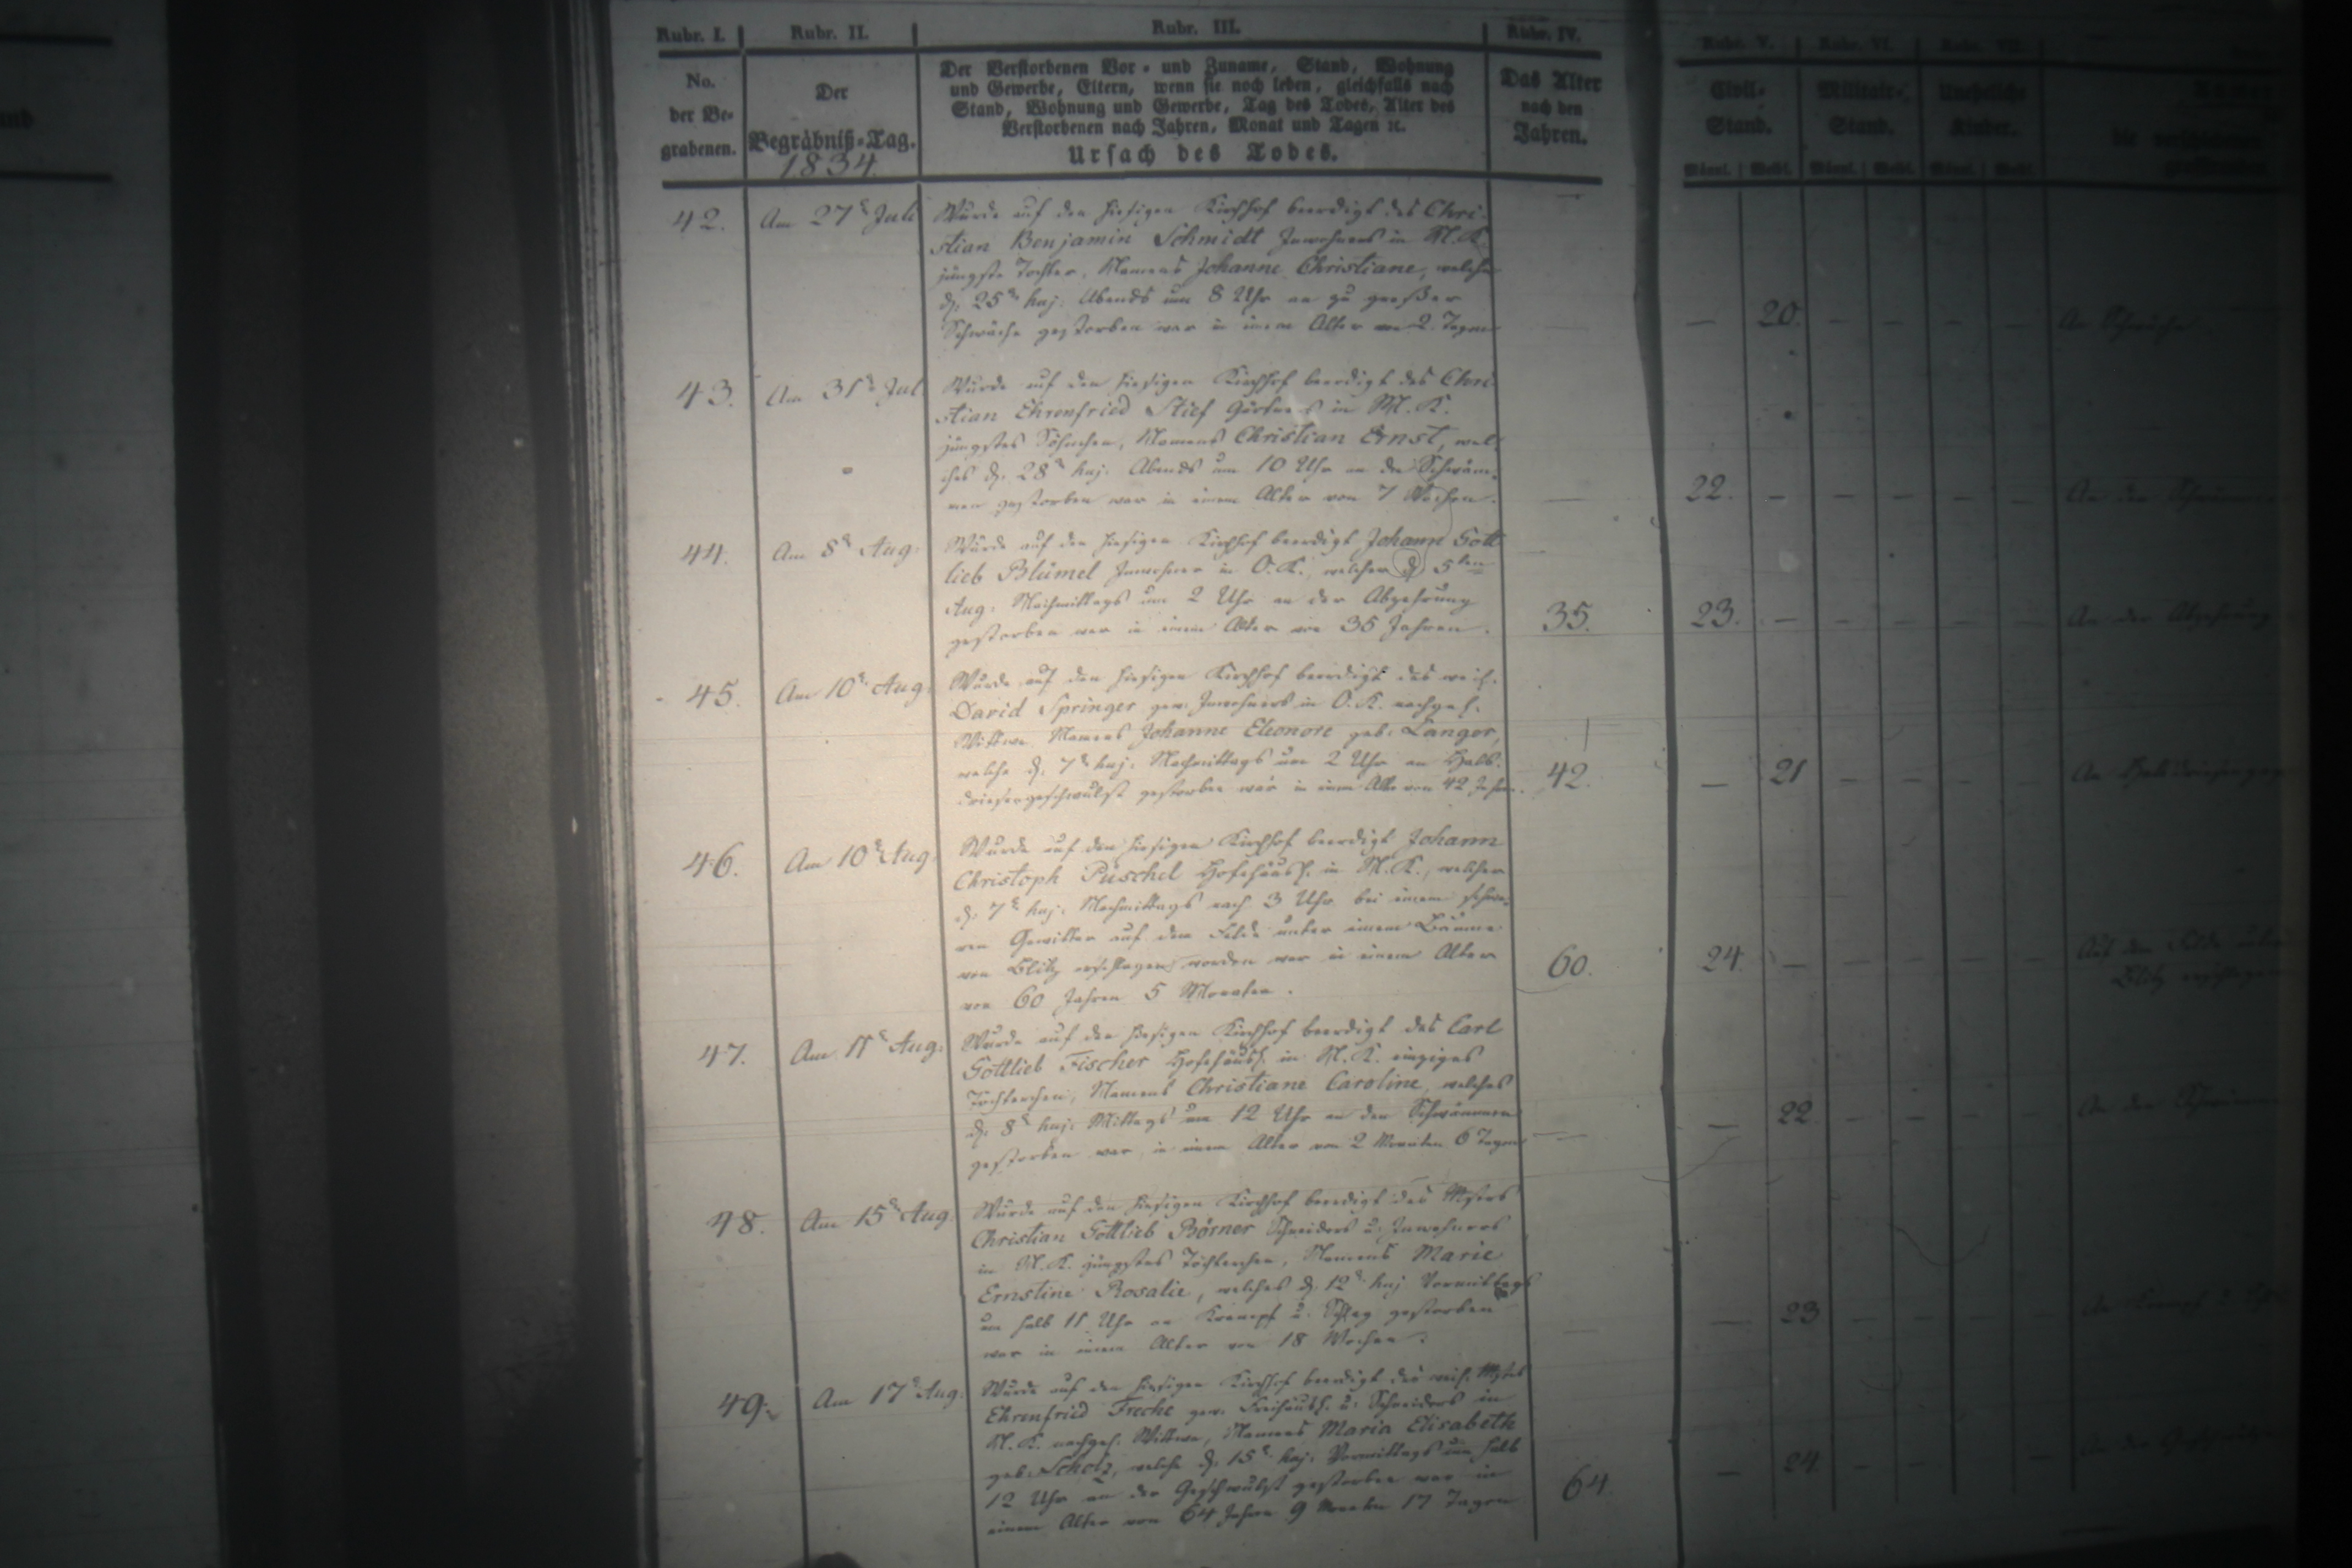 Rubr. I. Rubr. II. Rubr. III. Rubr. IV. Rubr. V. Rubr. VI. Rubr. VII.
No. der Be- grabenen.
Der Begräbniß-Tag. 1834.
Der Verstorbenen Vor- und Zuname, Stand, Wohnung
und Gewerbe, Eltern, wenn sie noch leben, gleichfalls nach
Stand, Wohnung und Gewerbe, Tag des Todes, Alter des
Verstorbenen nach Jahren, Monat und Tagen ꝛc.
Ursach des Todes.
Das Alter nach den Jahren.
Civil- Stand. Militair- Stand. Uneheliche Kinder.
Männl. Weibl. Männl. Weibl. Männl. Weibl.
42. Am 27t Juli Wurde auf den hiesigen Kirchhof beerdigt des Chri-
stian Benjamin Schmidt Inwohners in M. K.
jüngste Tochter, Namens Johanne Christiane, welche
d. 25t huj. Abends um 8 Uhr an zu großer
Schwäche gestorben war in einem Alter von 2 Tagen — — 20. — — — — An Schwäche
43. Am 31t Jul. Wurde auf den hiesigen Kirchhof beerdigt des Chri-
stian Ehrenfried Stief Gärtners in M. K.
jüngstes Söhnchen, Namens Christian Ernst, wel-
ches d. 28t huj. Abends um 10 Uhr an den Schwäm-
men gestorben war in einem Alter von 7 Wochen. — 22. — — — — — An den
44. Am 8t Aug. Wurde auf den hiesigen Kirchhof beerdigt Johann Gott
lieb Blümel Inwohner in O. K., welcher d. 5ten
Aug. Nachmittags um 2 Uhr an der Abzehrung
gestorben war in einem Alter von 35 Jahren. 35. 23. — — — — — An der Abzehrung
45. Am 10t Aug. Wurde auf den hiesigen Kirchhof beerdigt des weil.
David Springer gew. Inwohners in O. K. nachgel.
Wittwe Namens Johanne Eleonore geb. Langer,
welche d. 7t huj. Nachmittags um 2 Uhr an Hals-
drüsengeschwulst gestorben war in einem Alter von 42 Jahren. 42. — 21 — — — — An
46. Am 10t Aug. Wurde auf den hiesigen Kirchhof beerdigt Johann
Christoph Püschel Hofehäusl. in M. K., welcher
d. 7t huj. Nachmittags nach 3 Uhr bei einem schwe-
ren Gewitter auf dem Felde unter einem Baume
von Blitz erschlagen worden war in einem Alter 60. 24. — — — — — Auf dem Felde
von 60 Jahren 5 Monaten. Blitz erschlagen
47. Am 11t Aug. Wurde auf den hiesigen Kirchhof beerdigt des Carl
Gottlieb Fischer Hofehäusl. in M. K. einziges
Töchterchen, Namens Christiane Caroline, welches
d. 8t huj. Mittags um 12 Uhr an den Schwämmen
gestorben war in einem Alter von 2 Monaten 6 Tagen — — 22. — — — — An den
48. Am 15t Aug. Wurde auf den hiesigen Kirchhof beerdigt des Mstrs
Christian Gottlieb Börner Schneiders u. Inwohners
in M. K. jüngstes Töchterchen, Namens Marie
Ernstine Rosalie, welches d. 12t huj. Vormittags
um halb 11 Uhr an Krampf u. Schlag gestorben
war in einem Alter von 18 Wochen. — — 23 — — — — An Krampf u.
49. Am 17t Aug. Wurde auf den hiesigen Kirchhof beerdigt des weil. Mstrs
Ehrenfried Freche gew. Freihäusl. u. Schneiders in
M. K. nachgel. Wittwe, Namens Maria Elisabeth
geb. Scholz, welche d. 15t huj. Vormittags um halb
12 Uhr an der Geschwulst gestorben war in
einem Alter von 64 Jahren 9 Monaten 17 Tagen 64. — 24 — — — —